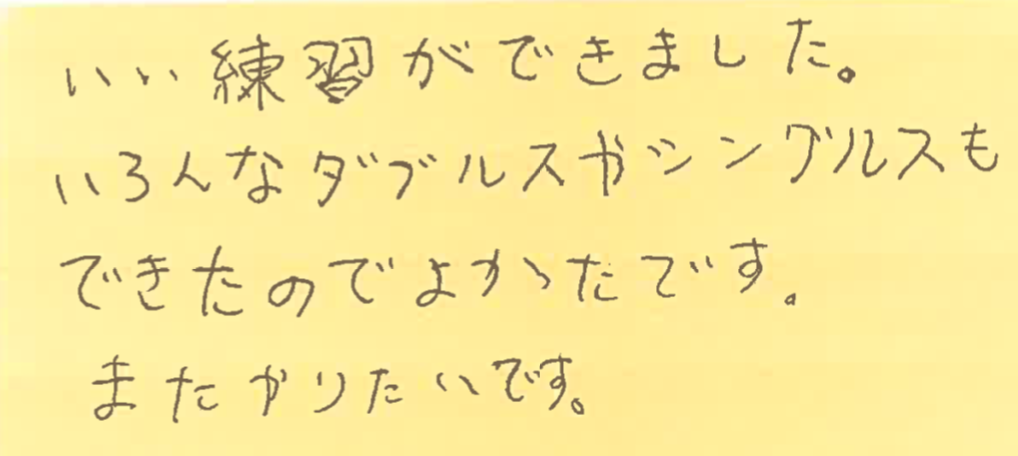 いい練習ができました。
いろんなダブルスやシングルスも
できたのでよかったです。
またかりたいです。